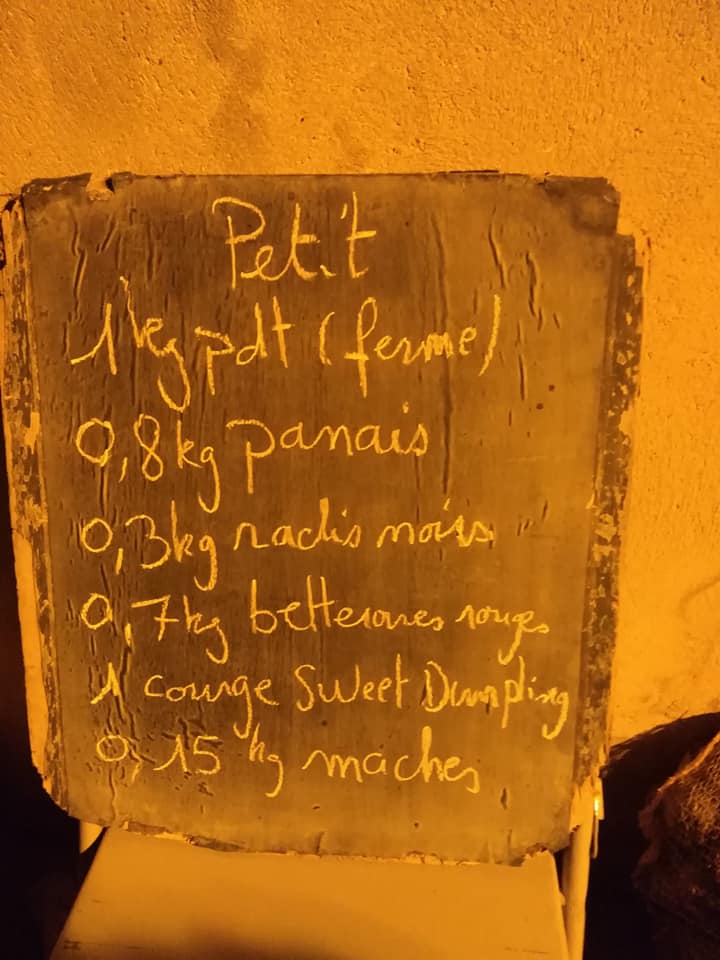 Petit
1kg pdt (ferme)
0,8kg panais
0,3kg radis noirs
0,7kg betteraves rouges
1 courge Sweet Dumpling
0,15 kg maches